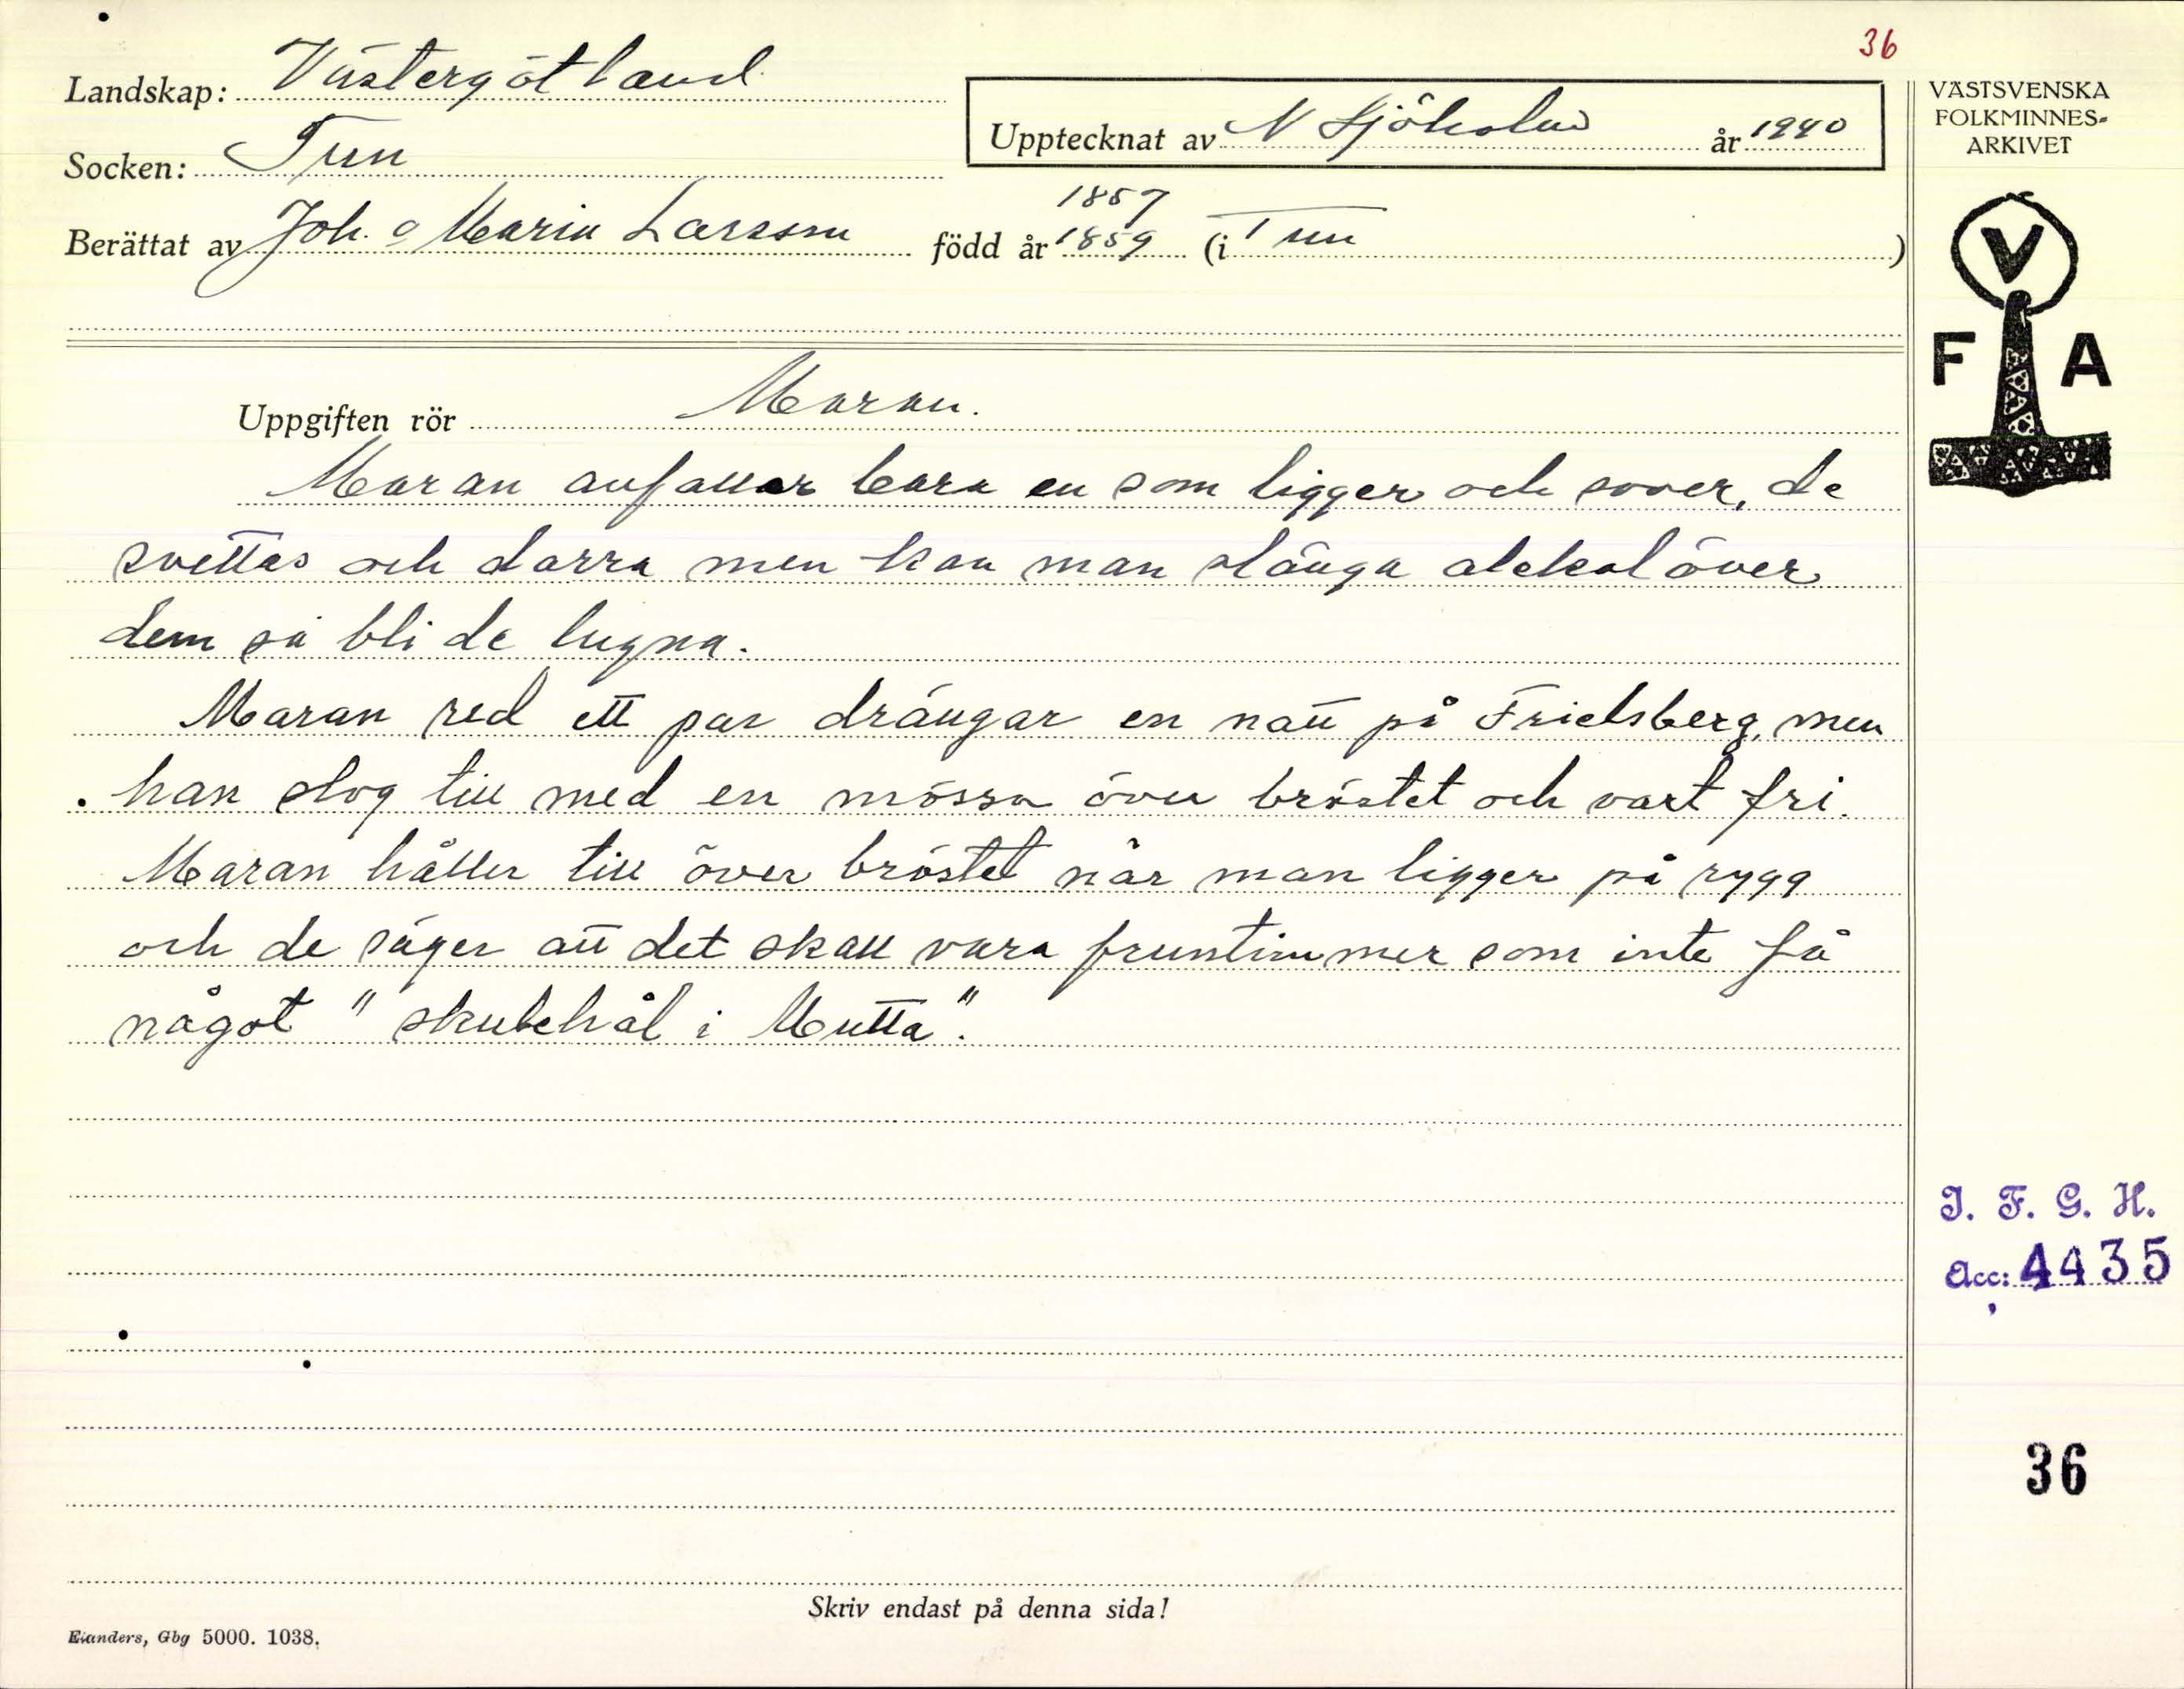 36
Landskap: Västergötland
Socken: Tun
Upptecknat av N Sjöholm år 1940
VÄSTSVENSKA
FOLKMINNES-
ARKIVET
1857
Berättat av Joh. o Maria Larsson född år 1859 (i Tun )
V
F A
Uppgiften rör Maran.
Maran anfaller bara en som ligger och sover, de
svettas och darra men kan man slänga över
dem så bli de lugna.
Maran red ett par drängar en natt på Fridsberg, men
han slog till med en mössa över bröstet och vart fri.
Maran håller till över bröstet när man ligger på rygg
och de säger att det skall vara fruntimmer som inte få
något " i Mutta".
I. F. G. H.
Acc: 4435
36
Skriv endast på denna sida!
Elanders, Gbg 5000. 1038.